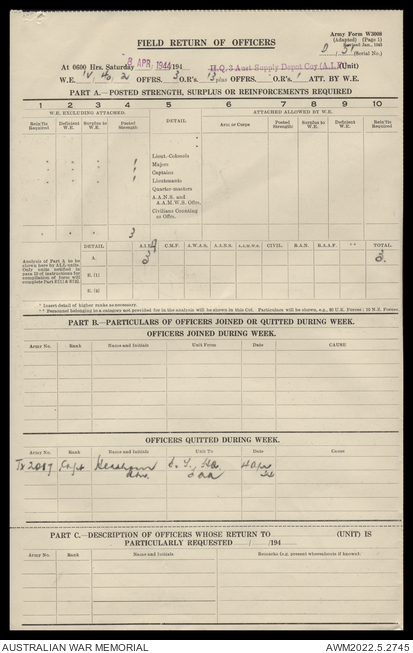 FIELD RETURN OF OFFICERS
Army Form W3008
(Adapted) (Page 1)
Revised Jan., 1943
(Serial No.)
At 0600 Hrs. Saturday 8 APR 1944 194 H.Q. 3 Aust Supply Depot Coy (A.I.F.) (Unit)
W.E. OFFRS. O.R's. plus OFFRS. O.R's. ATT. BY W.E.
PART A.—POSTED STRENGTH, SURPLUS OR REINFORCEMENTS REQUIRED
1 2 3 4 5 6 7 8 9 10
W.E. EXCLUDING ATTACHED. DETAIL ATTACHED ALLOWED BY W.E.
Rein'ts Required Deficient W.E. Surplus to W.E. Posted Strength Arm or Corps Posted Strength Surplus to W.E. Deficient W.E. Rein'ts Required
Lieut.-Colonels
Majors 1
Captains 1
Lieutenants 1
Quarter-masters
A.A.N.S. and
A.A.M.W.S. Offrs.
Civilians Counting
as Offrs.
3
Analysis of Part A to be shown here by ALL units. Only units entitled to earn ID of instructions for compilation of form will complete Part B (1) & B (2).
DETAIL A.I.F. C.M.F. A.W.A.S. A.A.N.S. A.A.M.W.S. CIVIL R.A.N. R.A.A.F. ** TOTAL
A. 3 3
B. (1)
B. (2)
* Insert detail of higher ranks as necessary.
** Personnel belonging to a category not provided for in the analysis will be shown in this Col. Particulars will be shown, e.g., 20 U.K. Forces; 10 N.E. Forces.
PART B.—PARTICULARS OF OFFICERS JOINED OR QUITTED DURING WEEK.
OFFICERS JOINED DURING WEEK.
Army No. Rank Names and Initials Unit From Date CAUSE
OFFICERS QUITTED DURING WEEK.
Army No. Rank Names and Initials Unit To Date Cause
Tx2017 Capt
PART C.—DESCRIPTION OF OFFICERS WHOSE RETURN TO (UNIT) IS
PARTICULARLY REQUESTED / /194
Army No. Rank Names and Initials Remarks (e.g. present whereabouts if known):
AUSTRALIAN WAR MEMORIAL
AWM2022.5.2745